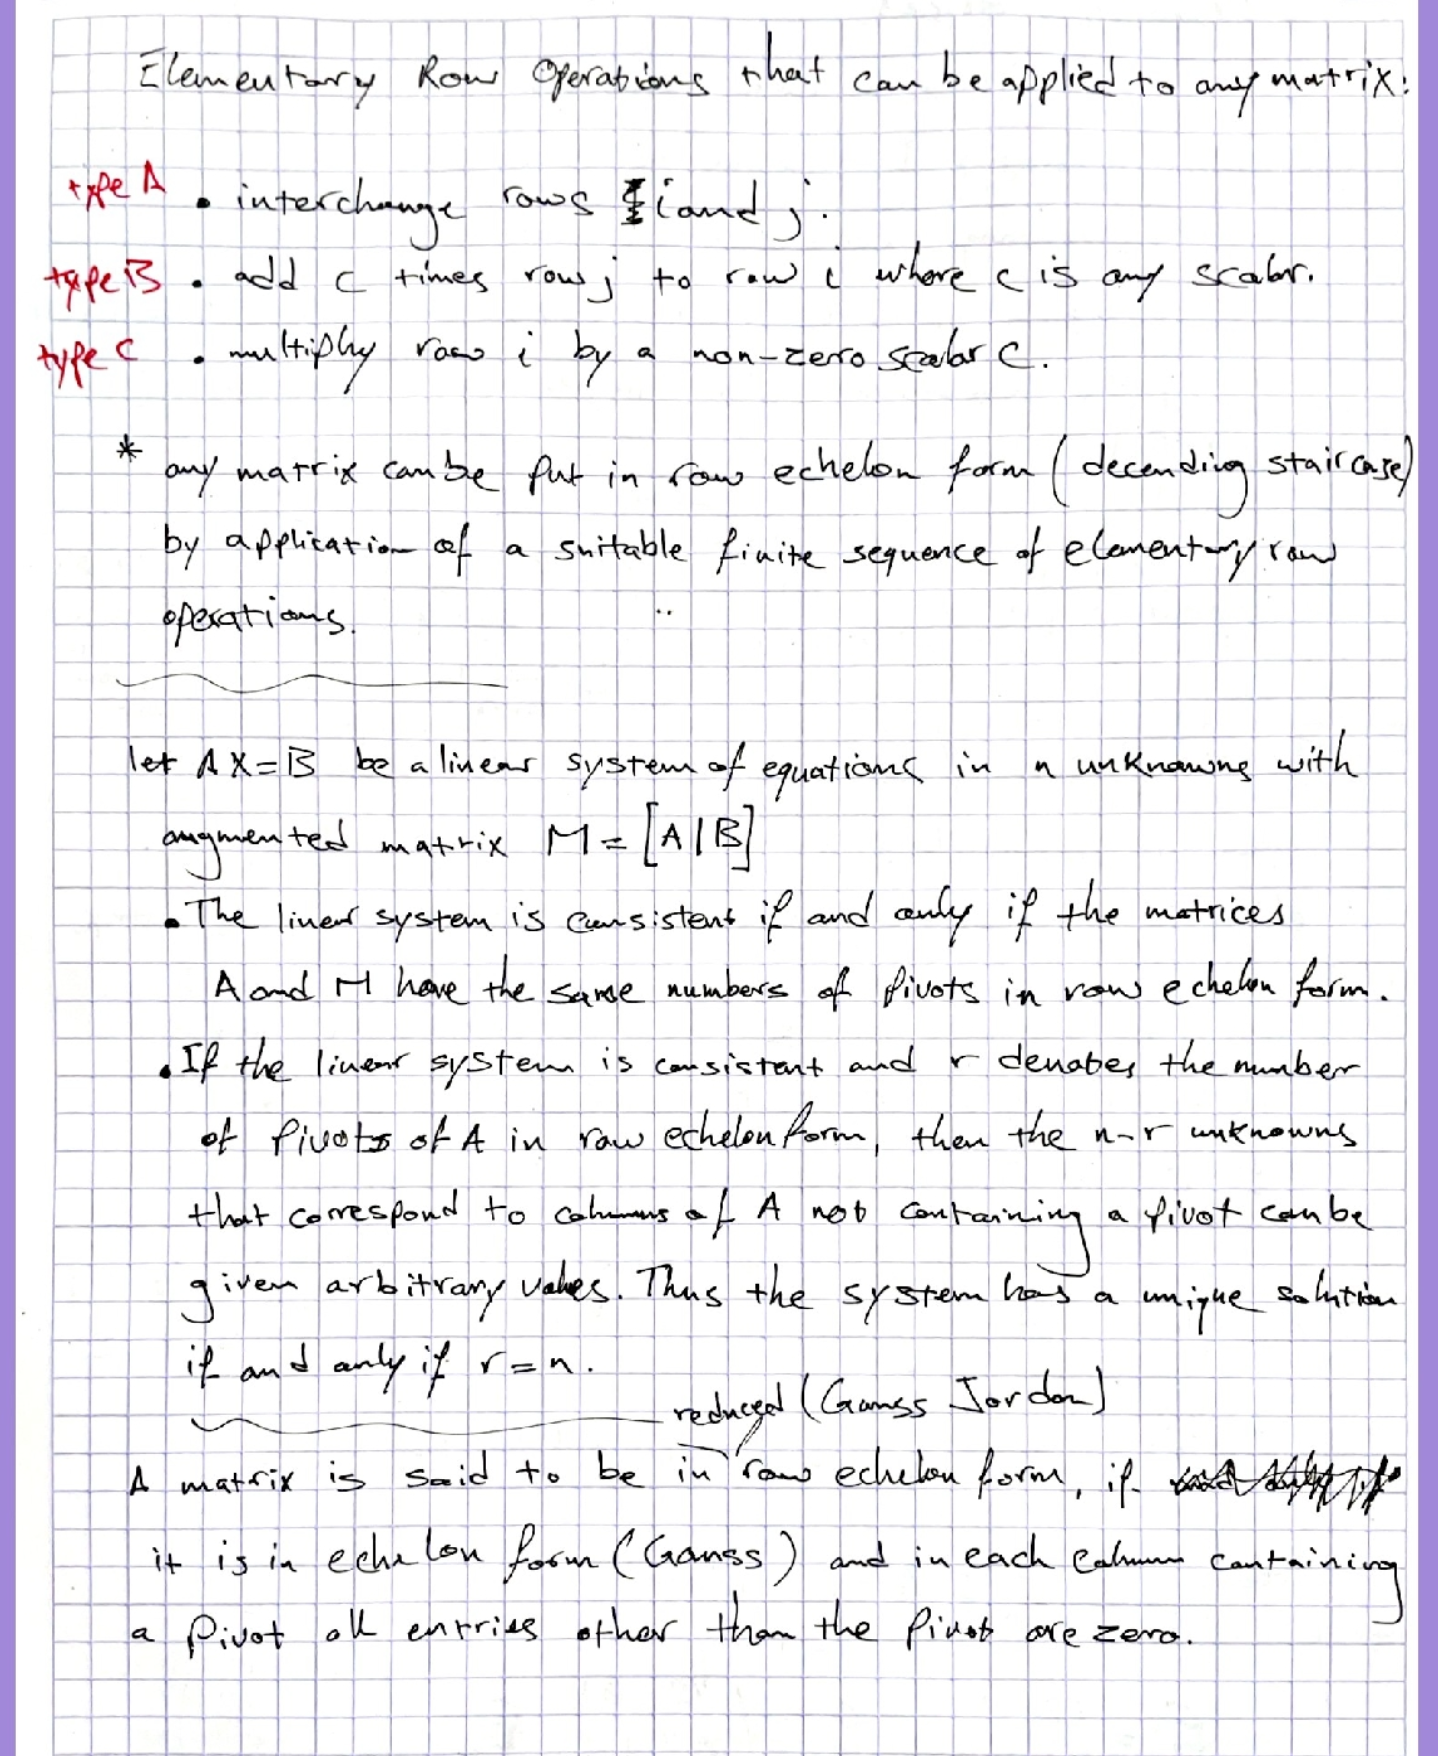 Elementary Row Operations that can be applied to any matrix:
type A • interchange rows i and j.
type B • add c times row j to row i where c is any scalar.
type C • multiply row i by a non-zero scalar c.
* any matrix can be put in row echelon form (decending stair case)
by application of a suitable finite sequence of elementary row
operations.
let AX=B be a linear system of equations in n unknowns with
augmented matrix M = [A|B]
• The linear system is consistent if and only if the matrices
A and M have the same numbers of pivots in row echelon form.
• If the linear system is consistent and r denotes the number
of pivots of A in row echelon form, then the n-r unknowns
that correspond to columns of A not containing a pivot can be
given arbitrary values. Thus the system has a unique solution
if and only if r=n.
reduced (Gauss Jordan)
A matrix is said to be in row echelon form, if
it is in echelon form (Gauss) and in each column containing
a pivot all entries other than the pivot are zero.